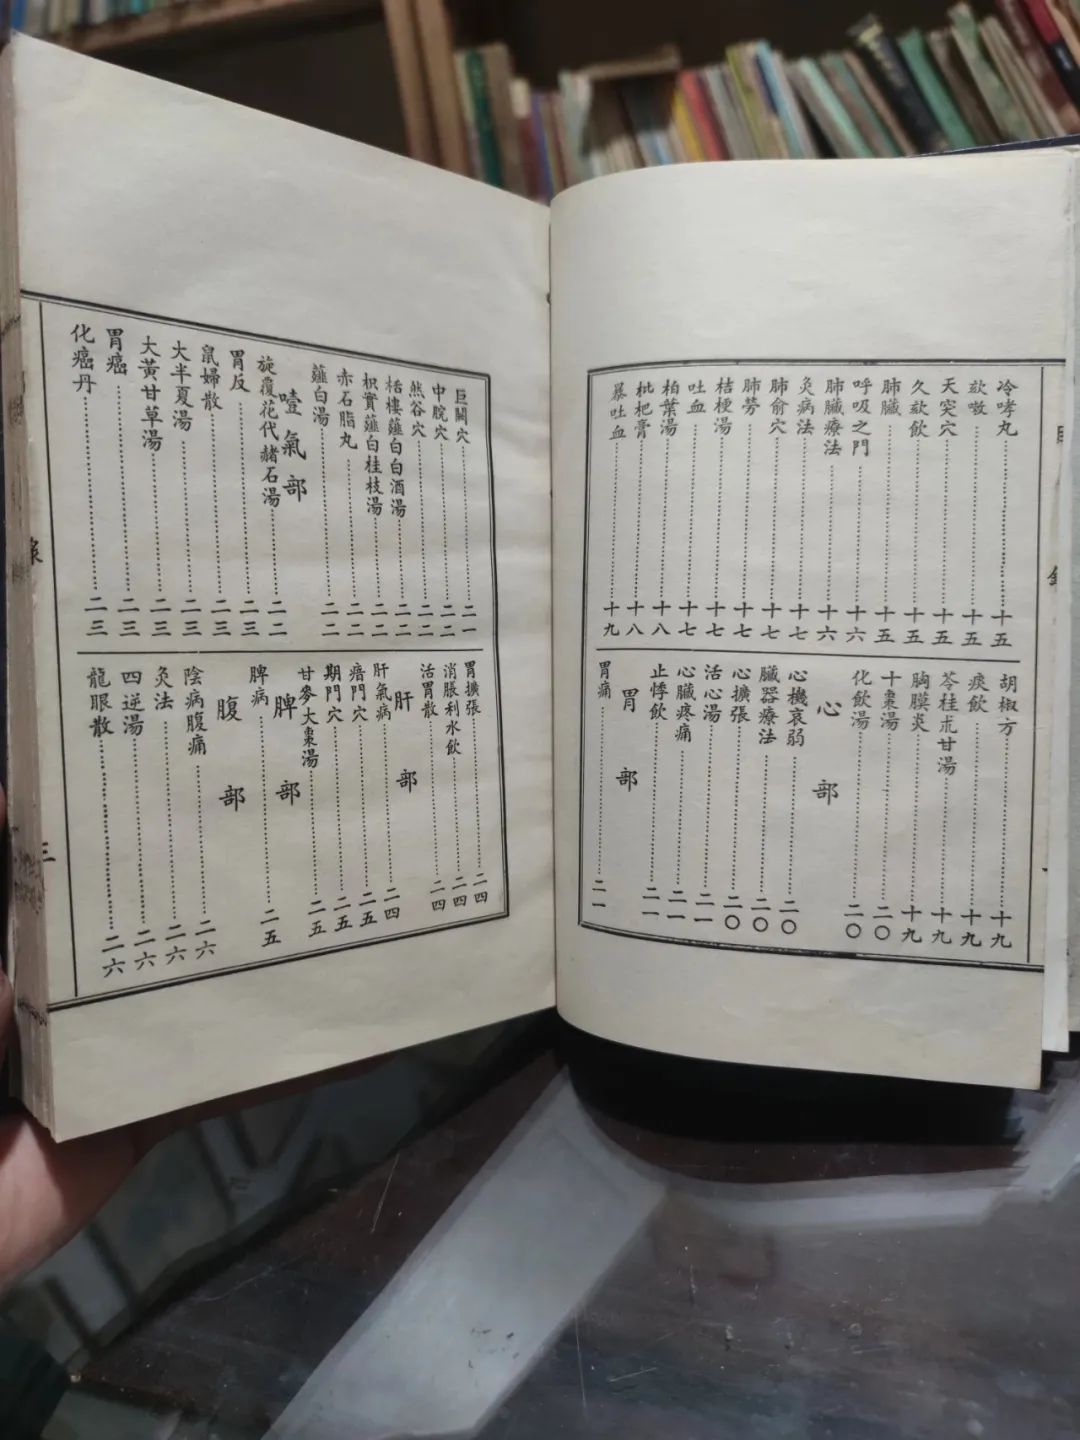 目
冷哮丸………十五
欬嗽………十五
天突穴………十五
久欬飲………十五
肺臟………十五
呼吸之門………十六
肺臟療法………十六
灸病法………十七
肺俞穴………十七
肺勞………十七
桔梗湯………十七
吐血………十七
柏葉湯………十八
枇杷膏………十八
暴吐血………十九
胡椒方………十九
痰飲………十九
苓桂朮甘湯………十九
胸膜炎………十九
十棗湯………二〇
化飲湯………二〇
心部
心機衰弱………二〇
臟器療法………二〇
心擴張………二〇
活心湯………二一
心臟疼痛………二一
止悸飲………二一
胃部
胃痛………二一
巨闕穴………二一
中脘穴………二二
然谷穴………二二
栝樓薤白白酒湯………二二
枳實薤白桂枝湯………二二
赤石脂丸………二二
薤白湯………二二
噎氣部
旋覆花代赭石湯………二二
胃反………二三
鼠婦散………二三
大半夏湯………二三
大黃甘草湯………二三
胃癌………二三
化癌丹………二三
胃擴張………二四
消脹利水飲………二四
活胃散………二四
肝部
肝氣病………二四
痞門穴………二五
期門穴………二五
甘麥大棗湯………二五
脾部
脾病………二五
腹部
陰病腹痛………二六
灸法………二六
四逆湯………二六
龍眼散………二六
三